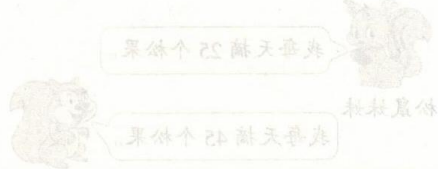 我每天摘 25 个松果。
松鼠妹妹
我每天摘 45 个松果。